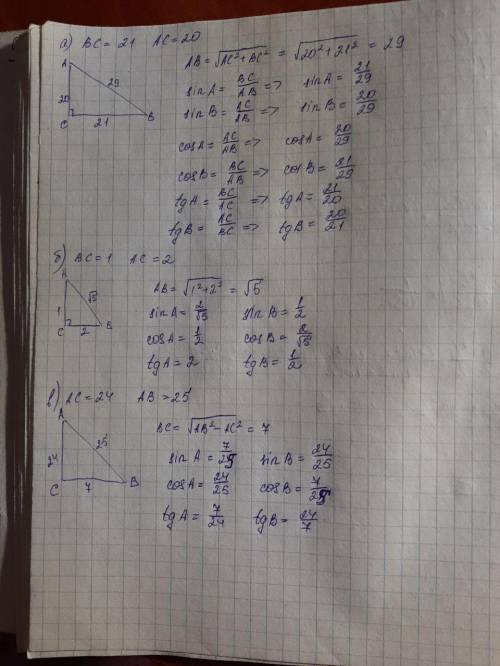 а) BC = 21 AC = 20
A
29
20
C
21
B
AB = √AC² + BC² = √20² + 21² = 29
sin A = BC/AB => sin A = 21/29
sin B = AC/AB => sin B = 20/29
cos A = AC/AB => cos A = 20/29
cos B = BC/AB => cos B = 21/29
tg A = BC/AC => tg A = 21/20
tg B = AC/BC => tg B = 20/21
б) BC = 1 AC = 2
A
√5
1
C
2
B
AB = √1² + 2² = √5
sin A = 2/√5 sin B = 1/2
cos A = 1/2 cos B = 2/√5
tg A = 2 tg B = 1/2
в) AC = 24 AB = 25
A
25
24
C
7
B
BC = √AB² − AC² = 7
sin A = 7/25 sin B = 24/25
cos A = 24/25 cos B = 7/25
tg A = 7/24 tg B = 24/7